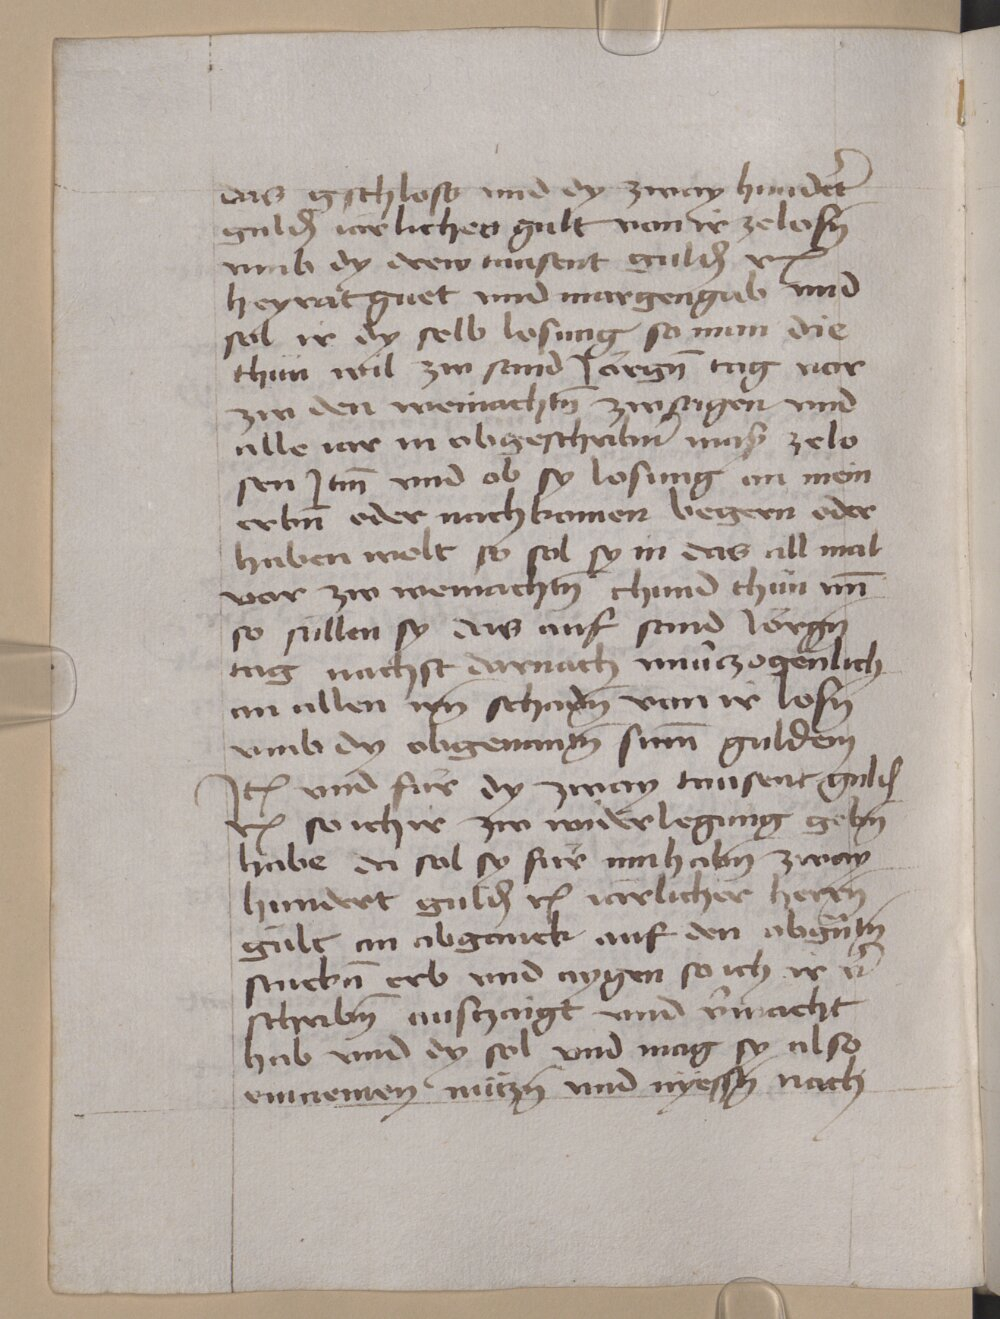 das gschloss und dy zway hundert
guldn̄ iarlicher gult von ir zelosn̄
umb dy drew tausent guldn̄ rͤ
heyrat guet und margengab und
sol ir dy selb losung so man die
thun wil zw sand Jorgn̄ tag vor
zw den weinachtn̄ zwsagen und
alle iar in obgeschribnr̄ mass zelo
sen Jtm̄ und ob sy losung an mein
erbn̄ oder nachkamen begern oder
haben wolt so sol sy in das all mal
vor zw weinachtn̄ chund thun un̄
so sullen sy das auf sand Jorgn̄
tag nachst darnach unu̔czogenlich
an allen irn̄ schadn̄ von ir losn̄
umb dy obgenantn̄ sum̄ guldein
Jt und fur dy zway tausent guld
r so ich ir zw widerlegung gebn̄
habe da sol sy fur inhabn̄ zway
hundert guld r iarlicher herrn̄
gult an abganck auf den obgn̄tn̄
stuckn̄ erb und aygen so ich ir v̄
schribn̄ auszaigt und v̄macht
hab und dy sol und mag sy also
einnemen nutzn̄ und nyessn̄ nach